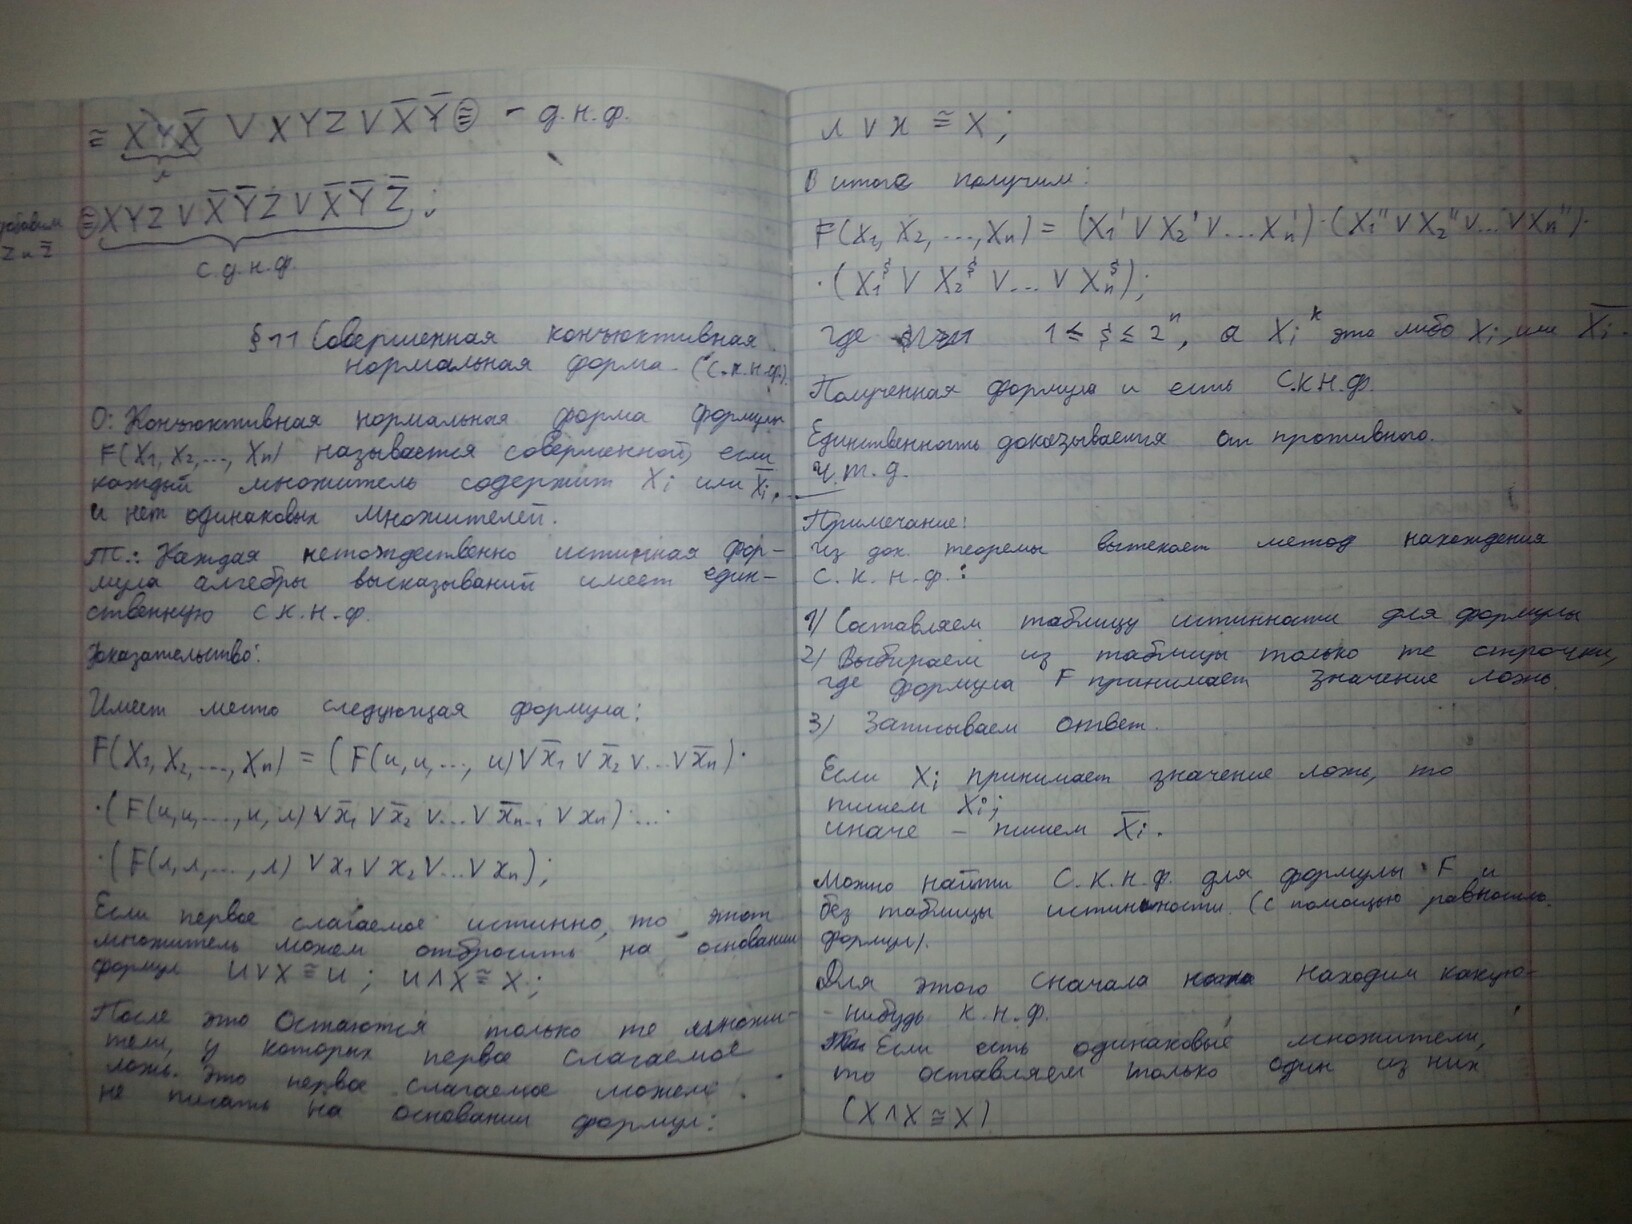 ≅ X Y X̅ V X Y Z V X̅ Y̅ ≅ - д.н.ф.
л
Z и Z̅
≅ X Y Z V X̅ Y̅ Z V X̅ Y̅ Z̅ ;
с.д.н.ф.
§ 11 Совершенная конъюктивная
нормальная форма. (с.к.н.ф.)
О: Конъюктивная нормальная форма формулы
F(X₁, X₂, ..., Xn) называется совершенной, если
каждый множитель содержит Xi или X̅i,
и нет одинаковых множителей.
Т.: Каждая нетождественно истинная фор-
мула алгебры высказываний имеет един-
ственную с.к.н.ф.
Доказательство:
Имеет место следующая формула:
F(X₁, X₂, ..., Xn) = (F(и, и, ..., и) V x̅₁ V x̅₂ V ... V x̅n) ·
· (F(и, и, ..., и, л) V x̅₁ V x̅₂ V ... V x̅n-1 V xn) · ... ·
· (F(л, л, ..., л) V x₁ V x₂ V ... V xn);
Если первое слагаемое истинно, то этот
множитель можем отбросить на основании
формул и V X ≅ и ; и Λ X ≅ X ;
После это остаются только те множи-
тели, у которых первое слагаемое
ложь. Это первое слагаемое можем
не писать на основании формул:
л V x ≅ X ;
В итоге получим:
F(X₁, X₂, ..., Xn) = (X₁' V X₂' V ... Xn') · (X₁'' V X₂'' V ... V Xn'') ·
· (X₁ˢ V X₂ˢ V ... V Xnˢ);
где 1 ≤ s ≤ 2ⁿ, а Xiᵏ это либо Xi, или X̅i.
Полученная формула и есть с.к.н.ф.
Единственность доказывается от противного.
ч.т.д.
Примечание:
из док. теоремы вытекает метод нахождения
с.к.н.ф.:
1) Составляем таблицу истинности для формулы
2) Выбираем из таблицы только те строчки,
где формула F принимает значение ложь.
3) Записываем ответ.
Если Xi принимает значение ложь, то
пишем Xi;
иначе - пишем X̅i.
Можно найти с.к.н.ф. для формулы F и
без таблицы истинности. (с помощью равносильн.
формул).
Для этого сначала находим какую-
-нибудь к.н.ф.
Если есть одинаковые множители,
то оставляем только один из них
(X Λ X ≅ X)